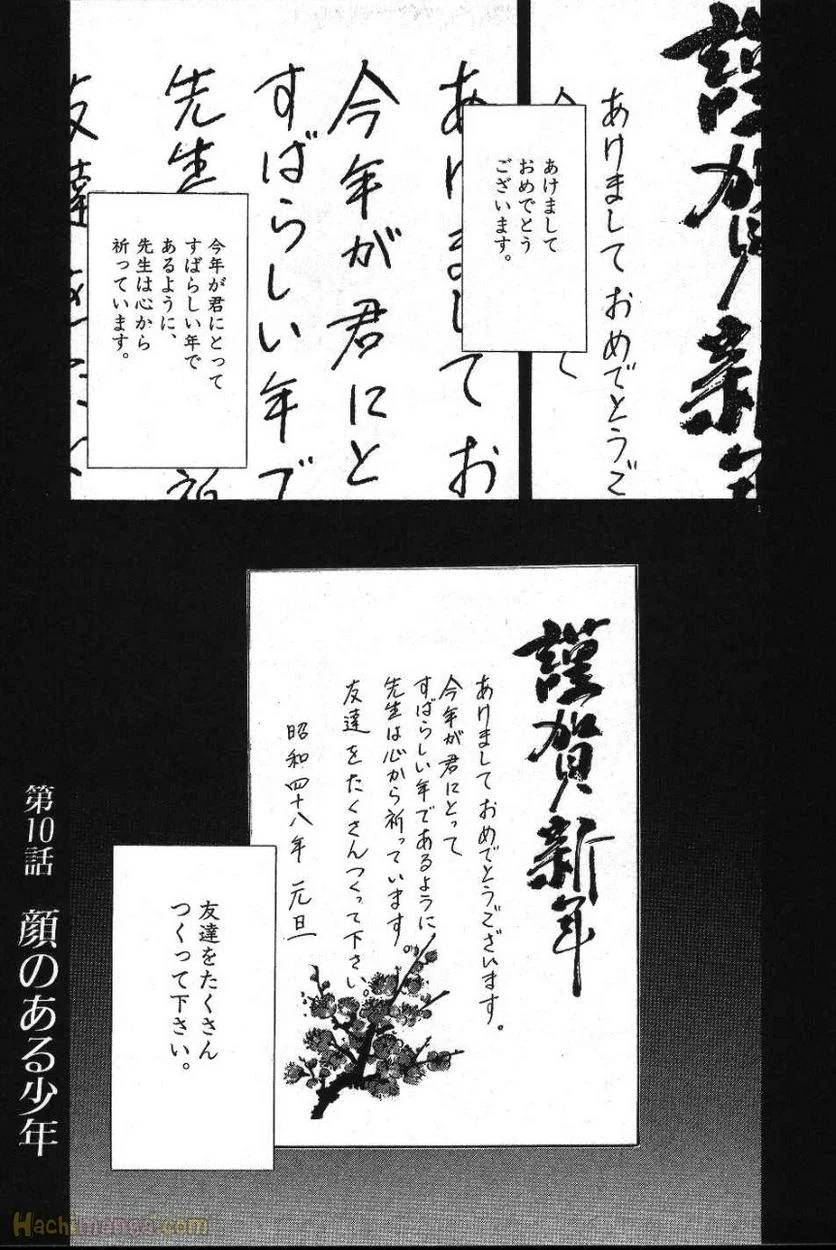 謹賀新
あけましておめでとうご
あけまして
おめでとう
ございます。
あけましてお
今年が君にと
すばらしい年で
先生
祈
友達
今年が君にとって
すばらしい年で
あるように、
先生は心から
祈っています。
謹賀新年
あけましておめでとうございます。
今年が君にとって
すばらしい年であるように
先生は心から祈っています。
友達をたくさんつくって下さい。
昭和四十八年 元旦
友達をたくさん
つくって下さい。
第10話 顔のある少年
Hachimanga.com